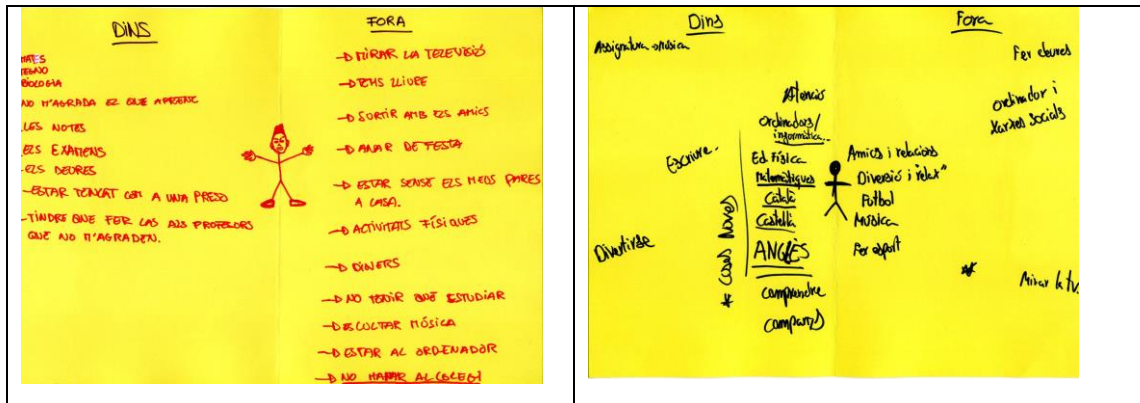 DINS
MATES
TEGNO
BIOLOGIA
NO M'AGRADA EL QUE APRENC
LES NOTES
ELS EXAMENS
-ELS DEURES
-ESTAR TENCAT COM A UNA PRESO
-TINDRE QUE FER CAS ALS PROFESORS
QUE NO M'AGRADEN.
FORA
MIRAR LA TELEVISIÓ
TEMS LLIURE
SORTIR AMB ELS AMICS
ANAR DE FESTA
ESTAR SENSE ELS MEUS PARES
A CASA.
ACTIVITATS FÍSIQUES
DINERS
NO TENIR QUE ESTUDIAR
ESCOLTAR MÚSICA
ESTAR AL ORDENADOR
NO HANAR AL COLEGI
Dins
Assignatura música
Atenció
Ordinadors/
informàtica...
Escriure.
Ed. Física
Matemàtiques
Català
Castellà
ANGLÈS
* Coses Noves
Divertirse
Comprendre
Companys
Fora
Fer deures
Ordinador i
Xarxes socials
Amics i relacions
Diversió i "relax"
Futbol
Música
Fer esport
*
Mirar la tv.